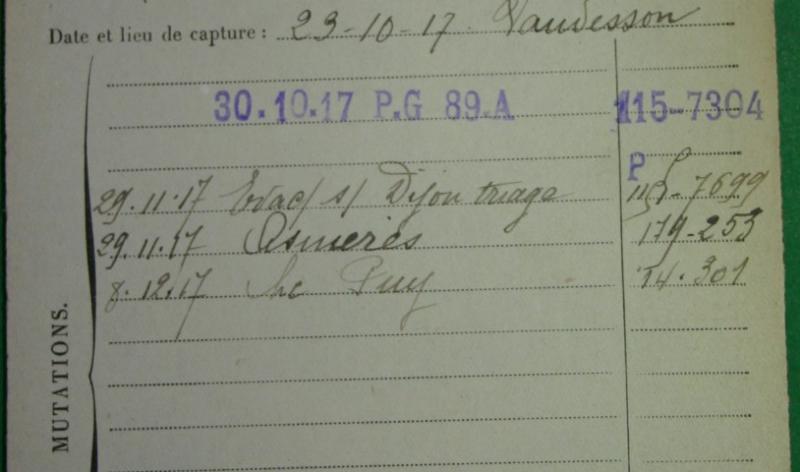 Date et lieu de capture : 23-10-17. Vaudesson
30.10.17 P.G 89.A 115-7304
P
29.11.17 Evac/ s/ Dijon triage 115-7699
29.11.17 Asnieres 179-253
8.12.17 Le Puy 14.301
MUTATIONS.